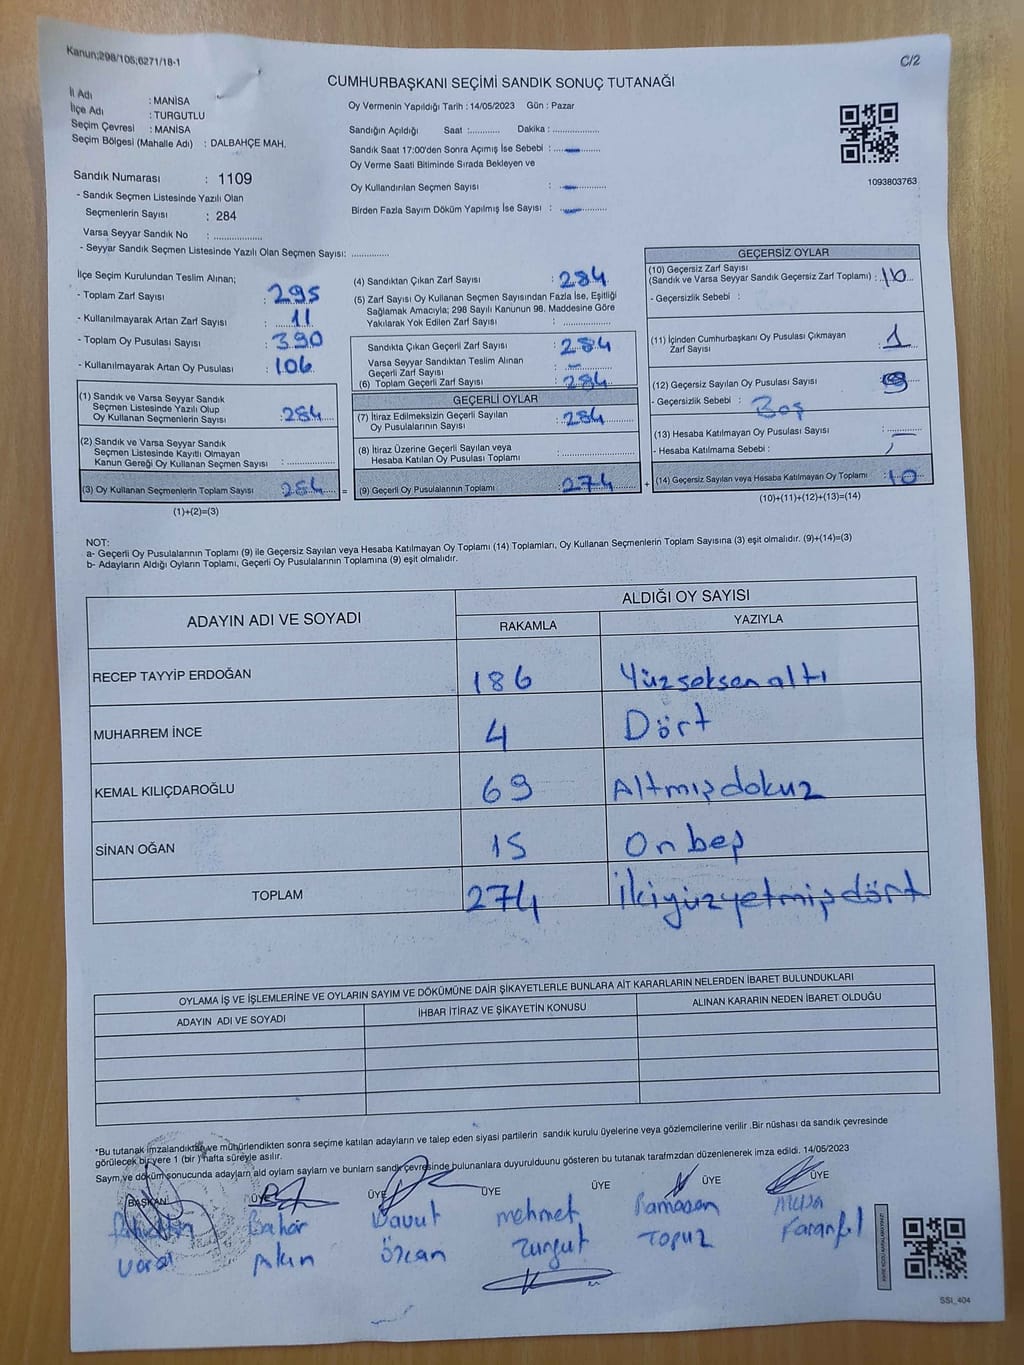 Kanun;298/105;6271/18-1
C/2
CUMHURBAŞKANI SEÇİMİ SANDIK SONUÇ TUTANAĞI
İl Adı : MANİSA
İlçe Adı : TURGUTLU
Seçim Çevresi : MANİSA
Seçim Bölgesi (Mahalle Adı) : DALBAHÇE MAH.
Oy Vermenin Yapıldığı Tarih : 14/05/2023 Gün : Pazar
Sandığın Açıldığı Saat :........... Dakika : ................
Sandık Saat 17:00'den Sonra Açımış İse Sebebi :
Oy Verme Saati Bitiminde Sırada Bekleyen ve
Oy Kullandırılan Seçmen Sayısı :
Birden Fazla Sayım Döküm Yapılmış İse Sayısı :
1093803763
Sandık Numarası : 1109
- Sandık Seçmen Listesinde Yazılı Olan
Seçmenlerin Sayısı : 284
Varsa Seyyar Sandık No : ................
- Seyyar Sandık Seçmen Listesinde Yazılı Olan Seçmen Sayısı: .............
İlçe Seçim Kurulundan Teslim Alınan;
- Toplam Zarf Sayısı : 295
- Kullanılmayarak Artan Zarf Sayısı : 11
- Toplam Oy Pusulası Sayısı : 390
- Kullanılmayarak Artan Oy Pusulası : 106
(1) Sandık ve Varsa Seyyar Sandık
Seçmen Listesinde Yazılı Olup
Oy Kullanan Seçmenlerin Sayısı : 284
(2) Sandık ve Varsa Seyyar Sandık
Seçmen Listesinde Kayıtlı Olmayan
Kanun Gereği Oy Kullanan Seçmen Sayısı : ................
(3) Oy Kullanan Seçmenlerin Toplam Sayısı : 284 =
(1)+(2)=(3)
(4) Sandıktan Çıkan Zarf Sayısı : 284
(5) Zarf Sayısı Oy Kullanan Seçmen Sayısından Fazla İse, Eşitliği
Sağlamak Amacıyla; 298 Sayılı Kanunun 98. Maddesine Göre
Yakılarak Yok Edilen Zarf Sayısı : ................
Sandıkta Çıkan Geçerli Zarf Sayısı : 284
Varsa Seyyar Sandıktan Teslim Alınan
Geçerli Zarf Sayısı : –
(6) Toplam Geçerli Zarf Sayısı : 284
GEÇERLİ OYLAR
(7) İtiraz Edilmeksizin Geçerli Sayılan
Oy Pusulalarının Sayısı : 284
(8) İtiraz Üzerine Geçerli Sayılan veya
Hesaba Katılan Oy Pusulası Toplamı : ................
(9) Geçerli Oy Pusulalarının Toplamı : 274 +
GEÇERSİZ OYLAR
(10) Geçersiz Zarf Sayısı
(Sandık ve Varsa Seyyar Sandık Geçersiz Zarf Toplamı) :
- Geçersizlik Sebebi :
(11) İçinden Cumhurbaşkanı Oy Pusulası Çıkmayan
Zarf Sayısı : 1
(12) Geçersiz Sayılan Oy Pusulası Sayısı : 9
- Geçersizlik Sebebi : Boş
(13) Hesaba Katılmayan Oy Pusulası Sayısı : ............
- Hesaba Katılmama Sebebi :
(14) Geçersiz Sayılan veya Hesaba Katılmayan Oy Toplamı : 10
(10)+(11)+(12)+(13)=(14)
NOT:
a- Geçerli Oy Pusulalarının Toplamı (9) ile Geçersiz Sayılan veya Hesaba Katılmayan Oy Toplamı (14) Toplamları, Oy Kullanan Seçmenlerin Toplam Sayısına (3) eşit olmalıdır. (9)+(14)=(3)
b- Adayların Aldığı Oyların Toplamı, Geçerli Oy Pusulalarının Toplamına (9) eşit olmalıdır.
ADAYIN ADI VE SOYADI
ALDIĞI OY SAYISI
RAKAMLA YAZIYLA
RECEP TAYYİP ERDOĞAN 186 Yüzseksenaltı
MUHARREM İNCE 4 Dört
KEMAL KILIÇDAROĞLU 69 Altmışdokuz
SİNAN OĞAN 15 Onbeş
TOPLAM 274 İkiyüzyetmişdört
OYLAMA İŞ VE İŞLEMLERİNE VE OYLARIN SAYIM VE DÖKÜMÜNE DAİR ŞİKAYETLERLE BUNLARA AİT KARARLARIN NELERDEN İBARET BULUNDUKLARI
ADAYIN ADI VE SOYADI İHBAR İTİRAZ VE ŞİKAYETİN KONUSU ALINAN KARARIN NEDEN İBARET OLDUĞU
*Bu tutanak imzalandıktan ve mühürlendikten sonra seçime katılan adayların ve talep eden siyasi partilerin sandık kurulu üyelerine veya gözlemcilerine verilir .Bir nüshası da sandık çevresinde
görülecek bir yere 1 (bir ) hafta süreyle asılır.
Saym ve döküm sonucunda adaylarn ald oylarn saylarn ve bunlarn sandk çevresinde bulunanlara duyurulduunu gösteren bu tutanak tarafmzdan düzenlenerek imza edildi. 14/05/2023
BAŞKAN ÜYE ÜYE ÜYE ÜYE ÜYE ÜYE
Bahar Davut Mehmet Ramazan Musa
Vural Akın Özcan Turgut Topuz Karanfil
SSI_404